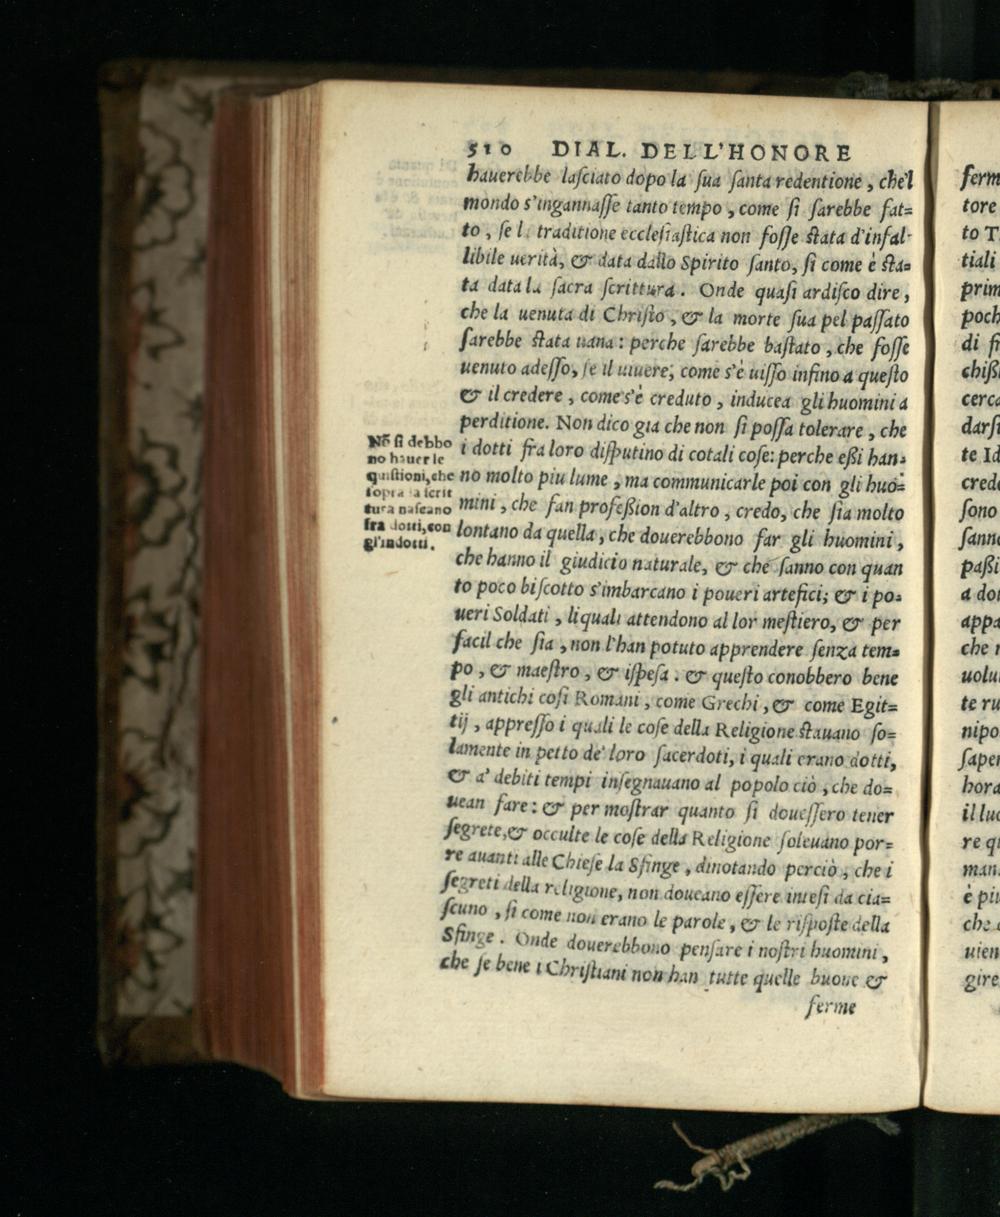 510 DIAL. DELL'HONORE
hauerebbe lasciato dopo la sua santa redentione, che'l
mondo s'ingannasse tanto tempo, come si sarebbe fat=
to, se la traditione ecclesiastica non fosse stata d'infal-
libile uerità, & data dallo Spirito santo, si come è sta=
ta data la sacra scrittura. Onde quasi ardisco dire,
che la uenuta di Christo, & la morte sua pel passato
sarebbe stata uana: perche sarebbe bastato, che fosse
uenuto adesso, se il uiuere, come s'è uisso infino a questo
& il credere, come s'è creduto, inducea gli huomini a
perditione. Non dico gia che non si possa tolerare, che
i dotti fra loro disputino di cotali cose: perche essi han=
no molto piu lume, ma communicarle poi con gli huo=
mini, che fan professìon d'altro, credo, che sia molto
lontano da quella, che douerebbono far gli huomini,
che hanno il giudicio naturale, & che sanno con quan
to poco biscotto s'imbarcano i poueri artefici; & i po=
ueri Soldati, liquali attendono al lor mestiero, & per
facil che sia, non l'han potuto apprendere senza tem=
po, & maestro, & ispesa. & questo conobbero bene
gli antichi cosi Romani, come Grechi, & come Egit=
tij, appresso i quali le cose della Religione stauano so=
lamente in petto de' loro sacerdoti, i quali erano dotti,
& a' debiti tempi insegnauano al popolo ciò, che do=
uean fare: & per mostrar quanto si douessero tener
segrete, & occulte le cose della Religione soleuano por=
re auanti alle Chiese la Sfinge, dinotando perciò, che i
segreti della religione, non doueano essere intesi da cia=
scuno, si come non erano le parole, & le risposte della
Sfinge. Onde douerebbono pensare i nostri huomini,
che se bene i Christiani non han tutte quelle buone &
ferme
Nō si debbo
no hauer le
quistioni, che
sopra la scrit
tura nascano
fra dotti, con
gl'indotti.
ferm
tore
to T
tiali
prim
poch
di fi
chiss
cerca
darsi
te Id
cred
sono
sann
passi
a do
appa
che
uolu
te ru
nipo
saper
hora
il luo
re qu
man
è piu
che
uien
gire